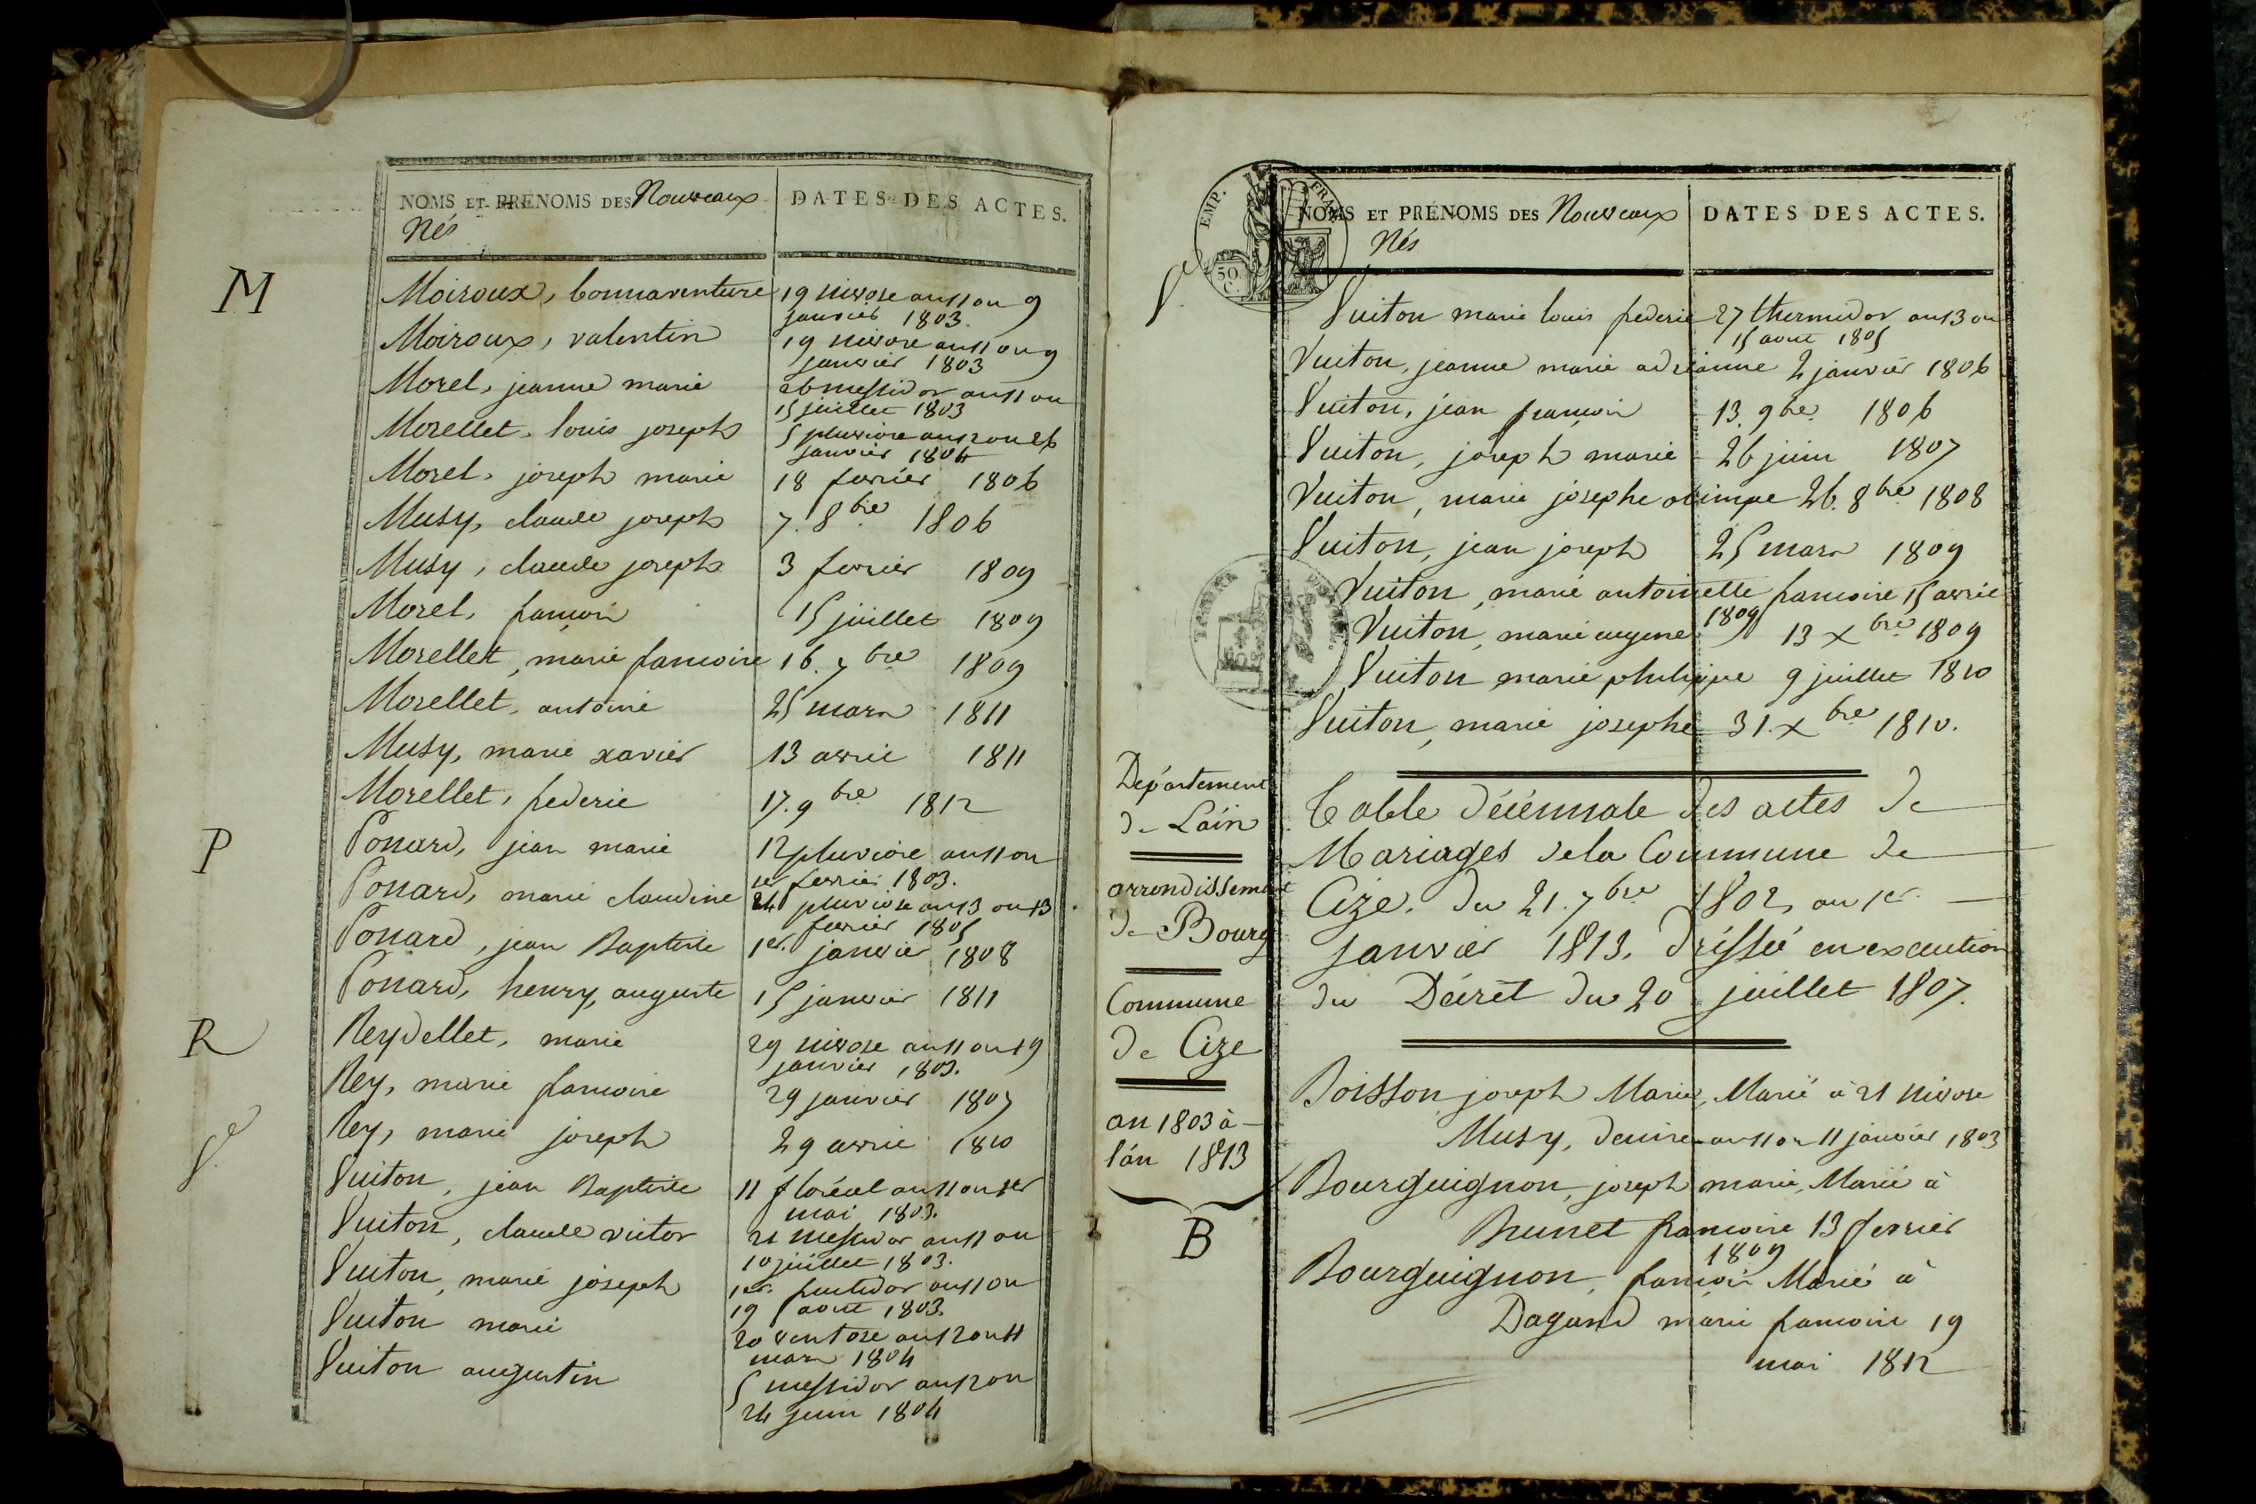 NOMS ET PRÉNOMS DES Nouveaux Nés
DATES DES ACTES.
M
Moiroux, bonnaventure 19 nivose an 11 ou 9
janvier 1803.
Moiroux, valentin 19 nivose an 11 ou 9
janvier 1803
Morel, jeanne marie 26 messidor an 11 ou
15 juillet 1803
Morellet, louis joseph 5 pluviose an 12 ou 26
janvier 1804
Morel, joseph marie 18 fevrier 1806
Musy, claude joseph 7. 8bre 1806
Musy, claude joseph 3 fevrier 1809
Morel, françois 15 juillet 1809
Morellet, marie francoise 16. 7bre 1809
Morellet, antoine 25 mars 1811
Musy, marie xavier 13 avril 1811
Morellet, federic 17. 9bre 1812
P
Ponard, jean marie 12 pluviose an 11 ou
1er fevrier 1803.
Ponard, marie claudine 24 pluviose an 13 ou 13
fevrier 1805
Ponard, jean Baptiste 1er. janvier 1808
Ponard, henry, auguste 15 janvier 1811
R
Reydellet, marie 29 nivose an 11 ou 19
janvier 1803.
Rey, marie francoise 29 janvier 1807
Rey, marie joseph 29 avril 1810
V
Vuiton, jean Baptiste 11 floréal an 11 ou 1er
mai 1803.
Vuiton, claude victor 21 messidor an 11 ou
10 juillet 1803.
Vuiton, marie joseph 1er. fructidor an 11 ou
19 aout 1803
Vuiton marie 20 ventose an 12 ou 11
mars 1804
Vuiton augustin 5 messidor an 12 ou
24 juin 1804
EMP. FRAN.
50. C.
NOMS ET PRÉNOMS DES Nouveaux Nés
DATES DES ACTES.
V
Vuiton marie louis federic 27 thermidor an 13 ou
15 aout 1805
Vuiton, jeanne marie adrianne 2 janvier 1806
Vuiton, jean françois 13. 9bre. 1806
Vuiton, joseph marie 26 juin 1807
Vuiton, marie josephe olimpe 26. 8bre 1808
Vuiton, jean joseph 25 mars 1809
Vuiton, marie antoinette francoise 15 avril
1809
Vuiton, marie eugene 13 xbre 1809
Vuiton marie philippe 9 juillet 1810
Vuiton, marie josephe 31. xbre 1810.
Département
de L'ain
arrondissement
de Bourg
Commune
de Cize
an 1803 à
l'án 1813
Table décénnale des actes de
Mariages de la Commune de
Cize. du 21. 7bre 1802, au 1er.
janvier 1813. Dréssée en execution
du Décrèt du 20 juillet 1807.
B
Boisson joseph Marie, Marié à 21 nivose
Musy, denise an 11 ou 11 janvier 1803
Bourguignon, joseph marie, Marié à
Brunet francoise 13 fevrier
1809
Bourguignon, françois Marié à
Dagand marie francoise 19
mai 1812